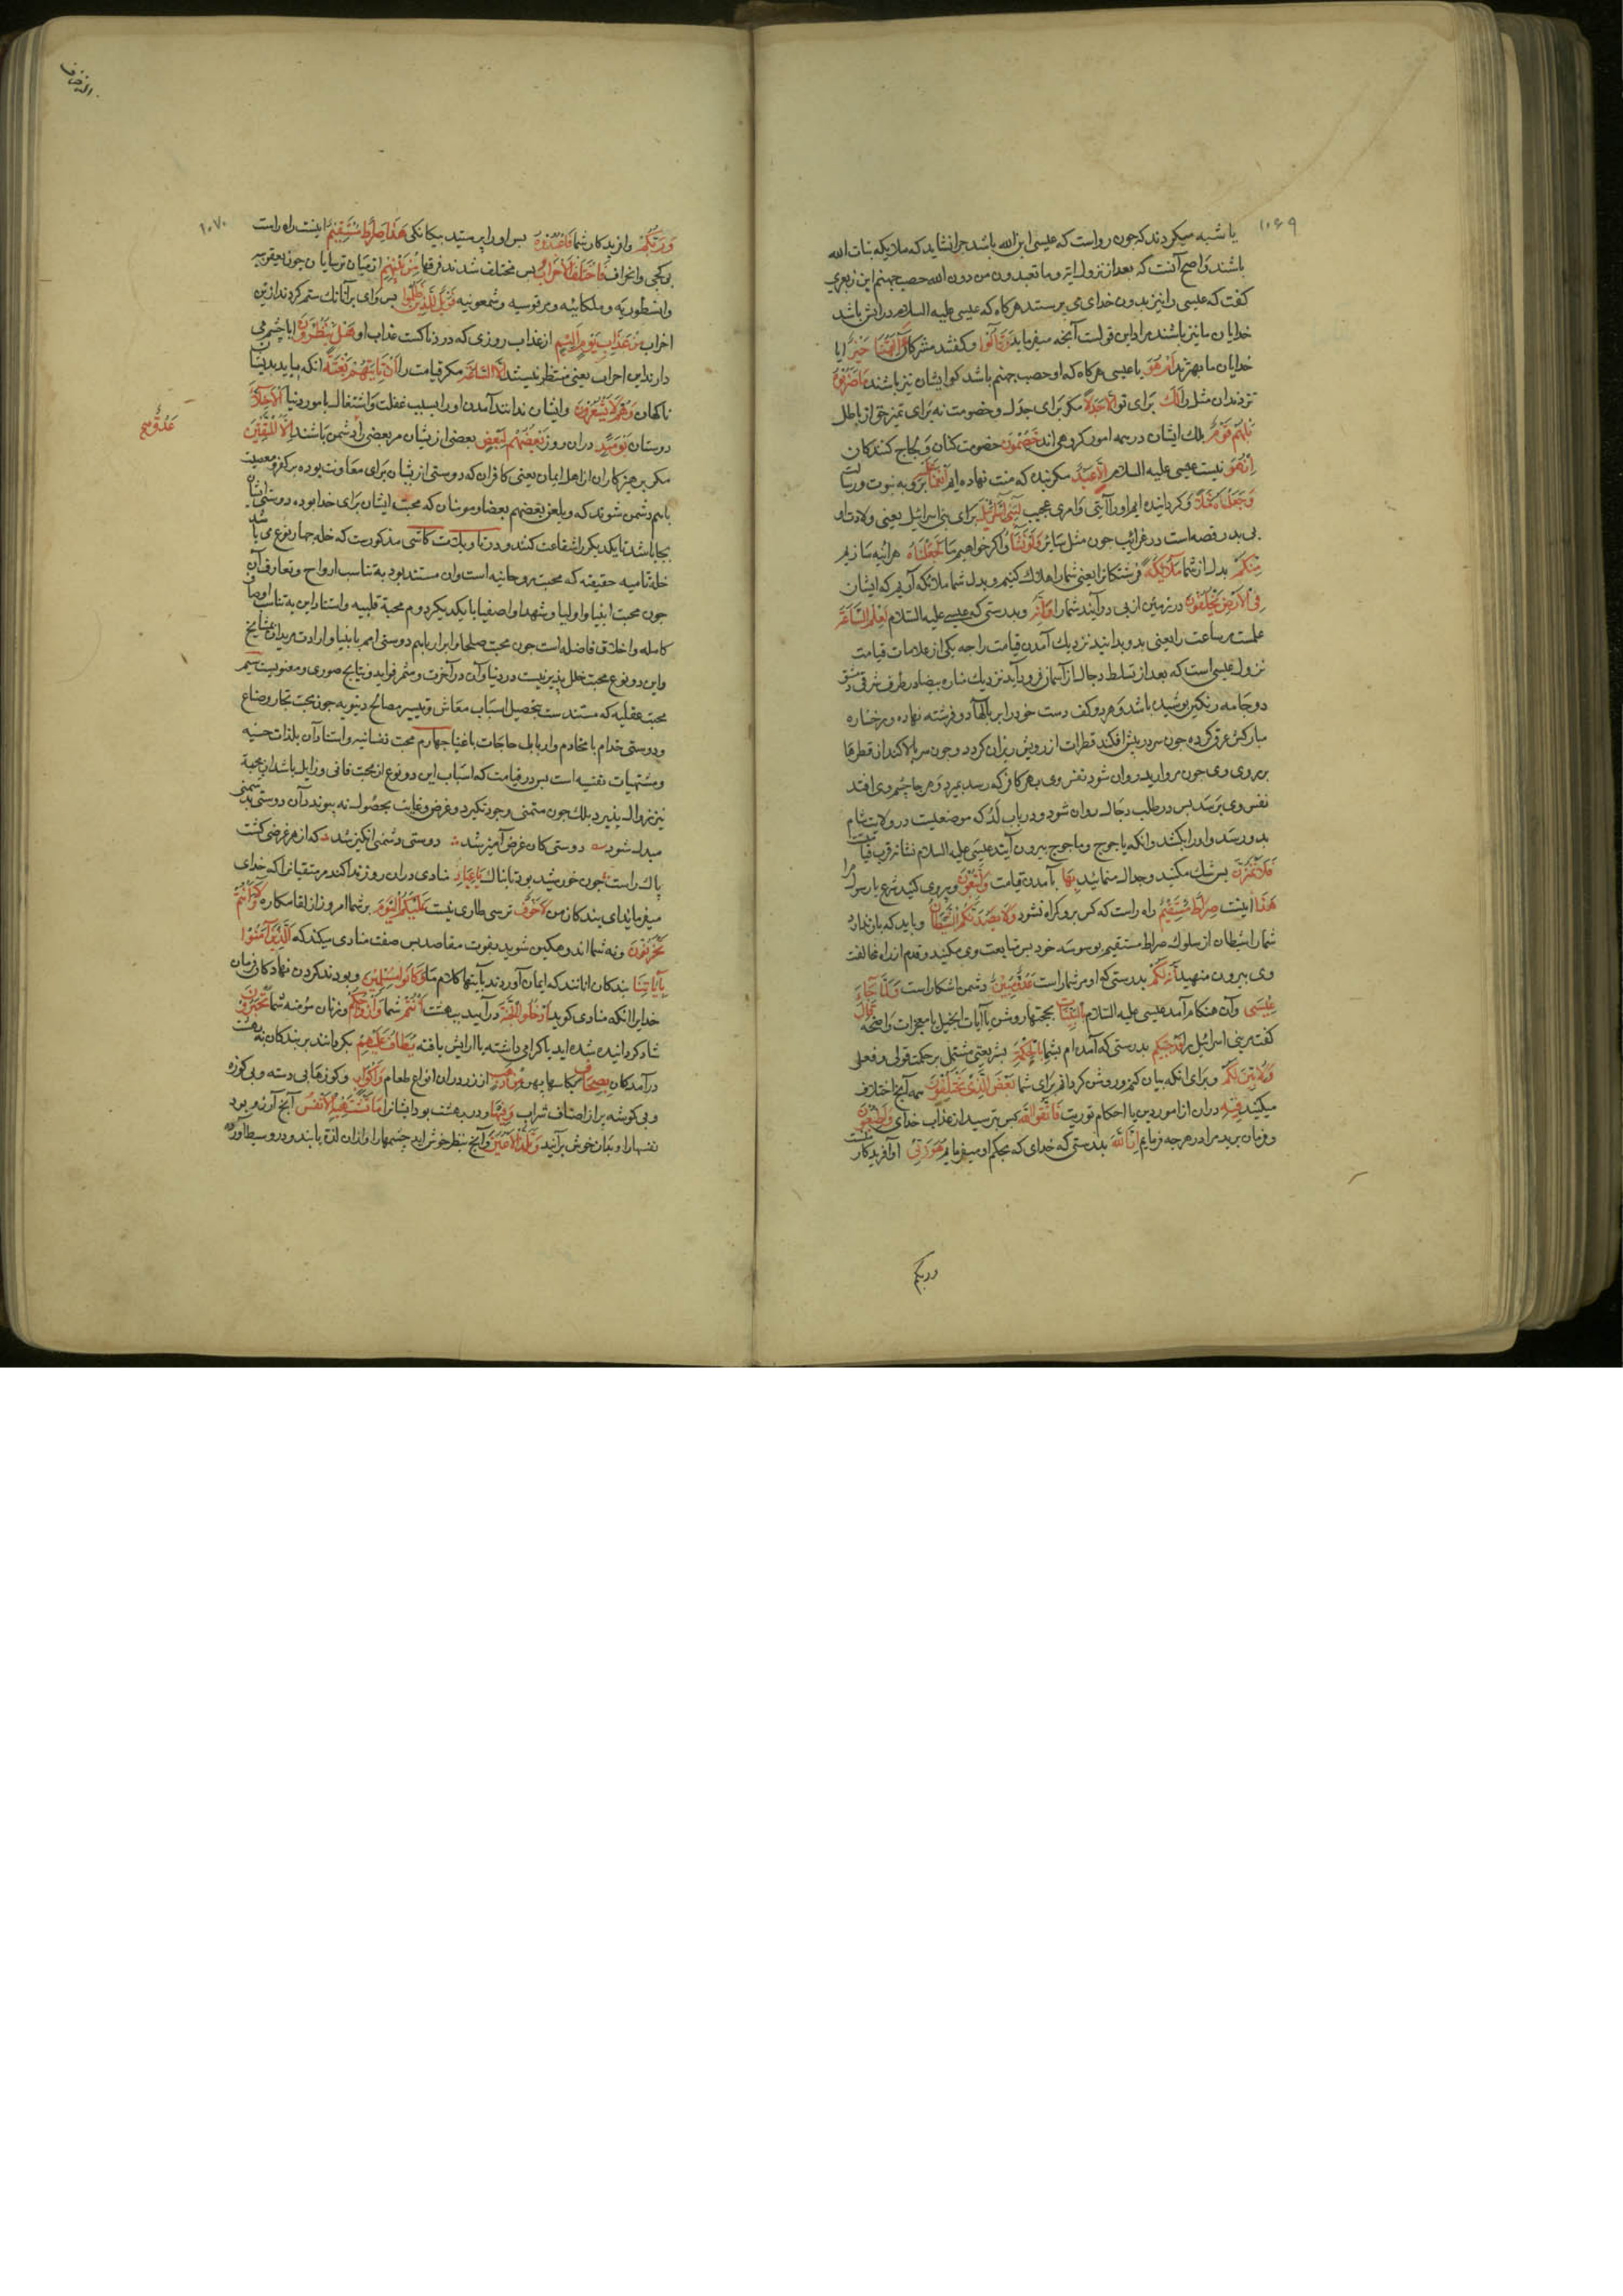 ۱۰۶۹
یا شبه میکردند که چون رواست که عیسی ابن الله باشد چرا نشاید که ملایکه بنات الله
باشند واصح آنست که بعد از نزول ایة وما تعبدون من دون الله حصب جهنم ابن زبعری
کفت که عیسی را نیز بدون خدای می پرستند هرکاه که عیسی علیه السلام در اتش باشد
خدایان ما نیز باشند مراد این قولست آنچه میفرماید وَقَالُوا وکفتند مشرکان ءَآلِهَتُنَا خَیْرٌ ایا
خدایان ما بهترند اَمْ هُوَ یا عیسی هرکاه که او حصب جهنم باشد کو ایشان نیز باشند مَا ضَرَبُوهُ
نزدند ان مثل را لَكَ برای تو اِلَّا جَدَلًا مکر برای جدل وخصومت نه برای تمیز حق از باطل
بَلْ هُمْ قَوْمٌ بلك ایشان در همه امور کروهی اند خَصِمُونَ خصومت کنان ولجاج کنندکان
اِنْ هُوَ نیست عیسی علیه السلام اِلَّا عَبْدٌ مکر بنده که منت نهاده ایم اَنْعَمْنَا عَلَیْهِ بروی به نبوت ورسالت
وَجَعَلْنَاهُ مَثَلًا وکردانیده ایم او را آیتی وامری عجیب لِبَنِی اِسْرَائِیلَ برای بنی اسرائیل یعنی ولادت او
بی پدر قصه است در غرایب چون مثل سایر وَلَوْ نَشَاءُ واکر خواهیم ما لَجَعَلْنَا هرآینه سازیم
مِنْكُمْ بدل از شما مَلَائِكَةً فرشتکانرا یعنی شما را هلاك کنیم وبدل شما ملائکه آریم که ایشان
فِی الْاَرْضِ یَخْلُفُونَ در زمین از پی در آیند شما را وَاِنَّهُ وبدرستی که عیسی علیه السلام لَعِلْمٌ لِلسَّاعَةِ
علمست مر ساعت را یعنی بدو بدانید نزدیك آمدن قیامت را چه یکی از علامات قیامت
نزول عیسی است که بعد از تسلط دجال از آسمان فرود آید نزدیك مناره بیضا در طرف شرقی دمشق
دو جامه رنکین پوشیده باشد وهر دو کف دست خود را بر بالهای دو فرشته نهاده وبر رخساره
مبارکش عرق کرده چون سر در پیش افکند قطرات از رویش ریزان کردد وچون سر بالا کند از قطرها
بر روی وی چون مروارید روان شود نفس وی بهر کافر که رسد بمیرد وهر جا چشم وی افتد
نفس وی برسد پس در طلب دجال روان شود ودر باب لد که موضعیست در ولایت شام
بدو رسد واو را بکشد وانکه یاجوج وماجوج بیرون آیند عیسی علیه السلام نشانه قرب قیامت
فَلَا تَمْتَرُنَّ پس شك مکنید وجدال منمائید بِهَا بآمدن قیامت وَاتَّبِعُونِ وپیروی کنید شرع یا رسول مرا
هَذَا اینست صِرَاطٌ مُسْتَقِیمٌ راه راست که کس برو کمراه نشود وَلَا یَصُدَّنَّكُمُ الشَّیْطَانُ وباید که باز ندارد
شما را شیطان از سلوك صراط مستقیم بوسوسه خود پس متابعت وی مکنید وقدم از راه مخالفت
وی بیرون منهید اِنَّهُ لَكُمْ بدرستی که او مر شما راست عَدُوٌّ مُبِینٌ دشمن اشکار است وَلَمَّا جَاءَ
عِیسَی وآن هنکام که آمد عیسی علیه السلام بِالْبَیِّنَاتِ بحجتهای روشن یا آیات انجیل یا معجزات واضحه قَالَ
کفت مر بنی اسرائیل را قَدْ جِئْتُكُمْ بدرستی که آمده ام بشما بِالْحِكْمَةِ بشریعتی مشتمل بر حکمت قولی وفعلی
وَلِاُبَیِّنَ لَكُمْ وبرای انکه بیان کنم وروشن کردانم برای شما بَعْضَ الَّذِی تَخْتَلِفُونَ همه آنچ اختلاف
میکنید فِیهِ دران از امور دین یا احکام توریت فَاتَّقُوا اللَّهَ پس بترسید از عذاب خدای وَاَطِیعُونِ
وفرمان برید مرا در هرچه فرمایم اِنَّ اللَّهَ بدرستی که خدای که بحکم او میفرمایم هُوَ رَبِّی اوآفریدکار منست
وربکم
الزخرف
۱۰۷۰
وَرَبُّكُمْ وآفریدکار شما فَاعْبُدُوهُ پس او را پرستید بیکانکی هَذَا صِرَاطٌ مُسْتَقِیمٌ اینست راه راست
بی کجی وانحراف فَاخْتَلَفَ الْاَحْزَابُ پس مختلف شدند فرقها مِنْ بَیْنِهِمْ از میان ترسایان چون یعقوبیه
ونسطوریه وملکائیه ومرقوسیه وشمعونیه فَوَیْلٌ لِلَّذِینَ ظَلَمُوا پس وای بر آنانك ستم کردند ازین
احزاب مِنْ عَذَابِ یَوْمٍ اَلِیمٍ از عذاب روزی که دردناکست عذاب او هَلْ یَنْظُرُونَ ایا چشم می
دارند این احزاب یعنی منتظر نیستند اِلَّا السَّاعَةَ مکر قیامت را اَنْ تَاْتِیَهُمْ بَغْتَةً انکه بیاید بدیشان
ناکهان وَهُمْ لَا یَشْعُرُونَ وایشان ندانند آمدن او را بسبب غفلت واشتغال بامور دنیا اَلْاَخِلَّاءُ
دوستان یَوْمَئِذٍ دران روز بَعْضُهُمْ لِبَعْضٍ بعضی ازیشان مر بعضی را دشمن باشند اِلَّا الْمُتَّقِینَ
عَدُوٌّ صح
مکر پرهیزکاران از اهل ایمان یعنی کافران که دوستی ازیشان برای معاونت بوده بر کفر ومعصیت
باهم دشمن شوند که ویلعن بعضهم بعضا ومومنان که محبت ایشان برای خدا بوده دوستی ایشان
بجا باشد تا یکدیکر را شفاعت کنند ودر تاویلات کاشی مذکورست که خله چهار نوع می باشد
خله تامه حقیقیه که محبت روحانیه است وان مستند بود به تناسب ارواح وتعارف آن
چون محبت انبیا واولیا وشهدا واصفیا با یکدیکر دوم محبة قلبیه واستناد این به تناسب اوصاف
کامله واخلاق فاضله است چون محبت صلحا وابرار باهم ودوستی امم بانبیا وارادت مریدان بمشایخ
واین دو نوع محبت خلل پذیر نیست در دنیا وآن در آخرت ومثمر فواید ونتایج صوری ومعنویست سیم
محبت عقلیه که مستندست بتحصیل اسباب معاش وتیسیر مصالح دنیویه چون محبت تجار وصناع
ودوستی خدام با مخادم وارباب حاجات باغنیا چهارم محبت نفسانیه واستناد آن بلذات حسیه
ومشتهیات نفسیه است پس در قیامت که اسباب این دو نوع از محبت فانی وزایل باشد ان محبة
نیز زوال پذیرد بلك چون متمنی وجود نکیرد وغرض وغایت بحصول نه پیوندد آن دوستی بدشمنی
مبدل شود دوستی کان غرض آمیز شد دوستی دشمنی انکیز شد که از هر غرضی کشت
پاك راست چون خورشید بود تابناك یَا عِبَادِ منادی دران روز ندا کند مر متقیانرا که خدای
میفرماید ای بندکان من لَا خَوْفٌ ترسی طاری نیست عَلَیْكُمُ الْیَوْمَ بر شما امروز از لقا مکاره وَلَا اَنْتُمْ
تَحْزَنُونَ ونه شما اندوهکین شوید بفوت مقاصد پس صفت منادی میکند که اَلَّذِینَ آمَنُوا
بِآیَاتِنَا بندکان انانند که ایمان آوردند بآیتهای کلام ما وَكَانُوا مُسْلِمِینَ وبودند کردن نهادکان فرمان
خدایرا انکه منادی کوید اُدْخُلُوا الْجَنَّةَ درآیید ببهشت اَنْتُمْ شما وَاَزْوَاجُكُمْ وزنان مؤمنه شما تُحْبَرُونَ
شاد کردانیده شده اید یا کرامی داشته یا ارایش یافته یُطَافُ عَلَیْهِمْ بکردانند بر بندکان به بهشت
درآمدکان بِصِحَافٍ کاسهای پهن مِنْ ذَهَبٍ از زر دران انواع طعام وَاَكْوَابٍ وکوزهای بی دسته وبی کوزه
وبی کوشه پر از اصناف شراب وَفِیهَا ودر بهشت بود ایشانرا مَا تَشْتَهِیهِ الْاَنْفُسُ آنچ آرزو برد
نفسها را وبدان خوش برآنید وَتَلَذُّ الْاَعْیُنُ وآنچ بنظر خوش اید چشمها را واز ان لذة یابند ودر وسیط آورده